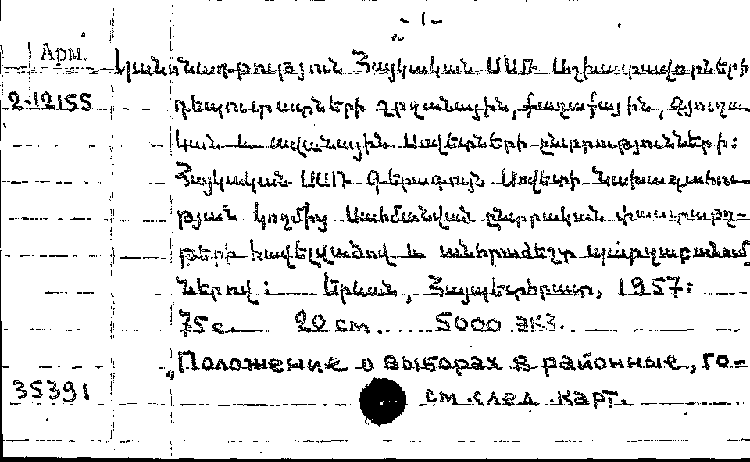 - 1 -
Арм. Կանոնադրություն Հայկական ՍՍՌ Աշխատավորների
2-12155 դեպուտատների շրջանային, քաղաքային, գյուղա
կան և ավանային Սովետների ընտրությունների:
Հայկական ՍՍՌ Գերագույն Սովետի Նախագահու-
թյան կողմից սահմանված ընտրական փաստաթղ-
թերի հավելվածով և անհրաժեշտ պարզաբանում
ներով: Երևան, Հայպետհրատ, 1957:
75 с. 20 см. 5000 экз.
„Положение о выборах в районные, го-
35391 см. след. карт.